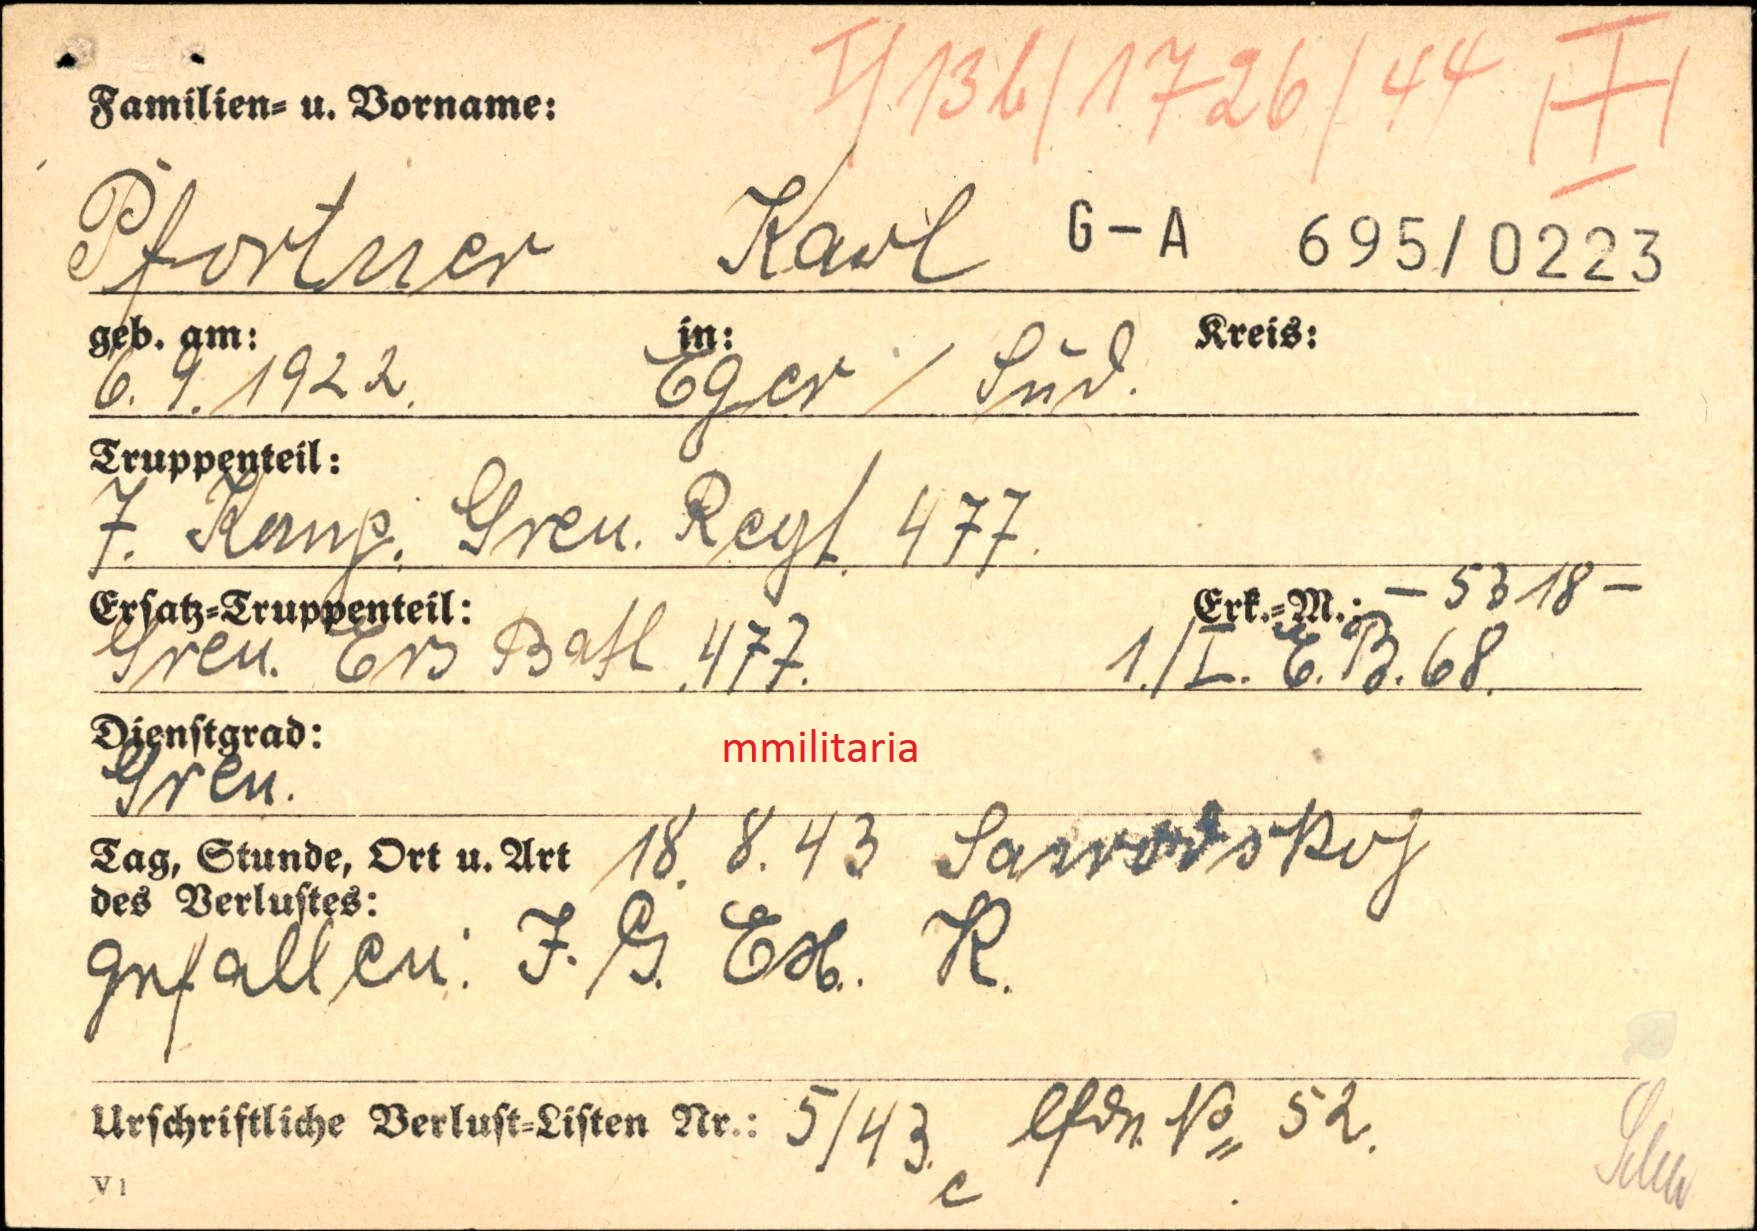 I/13b/1726/44
Familien- u. Vorname:
Pfortner Karl G-A 695/0223
geb. am: in: Kreis:
6. 9. 1922. Eger / Süd.
Truppenteil:
7. Komp. Gren. Regt. 477.
Ersatz-Truppenteil: Erk.-M.: - 5318 -
Gren. Ers Batl. 477. 1./I. E. B. 68.
Dienstgrad:
mmilitaria
Gren.
Tag, Stunde, Ort u. Art 18. 8. 43
des Verlustes:
gefallen. J. G. K.
Urschriftliche Verlust-Listen Nr.: 5/43. lfdn. No 52.
c
V1